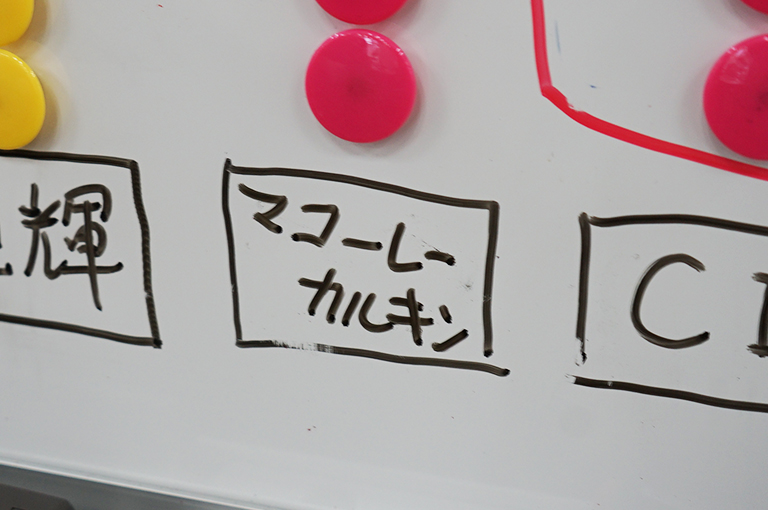 輝
マコーレー
カルキン
C